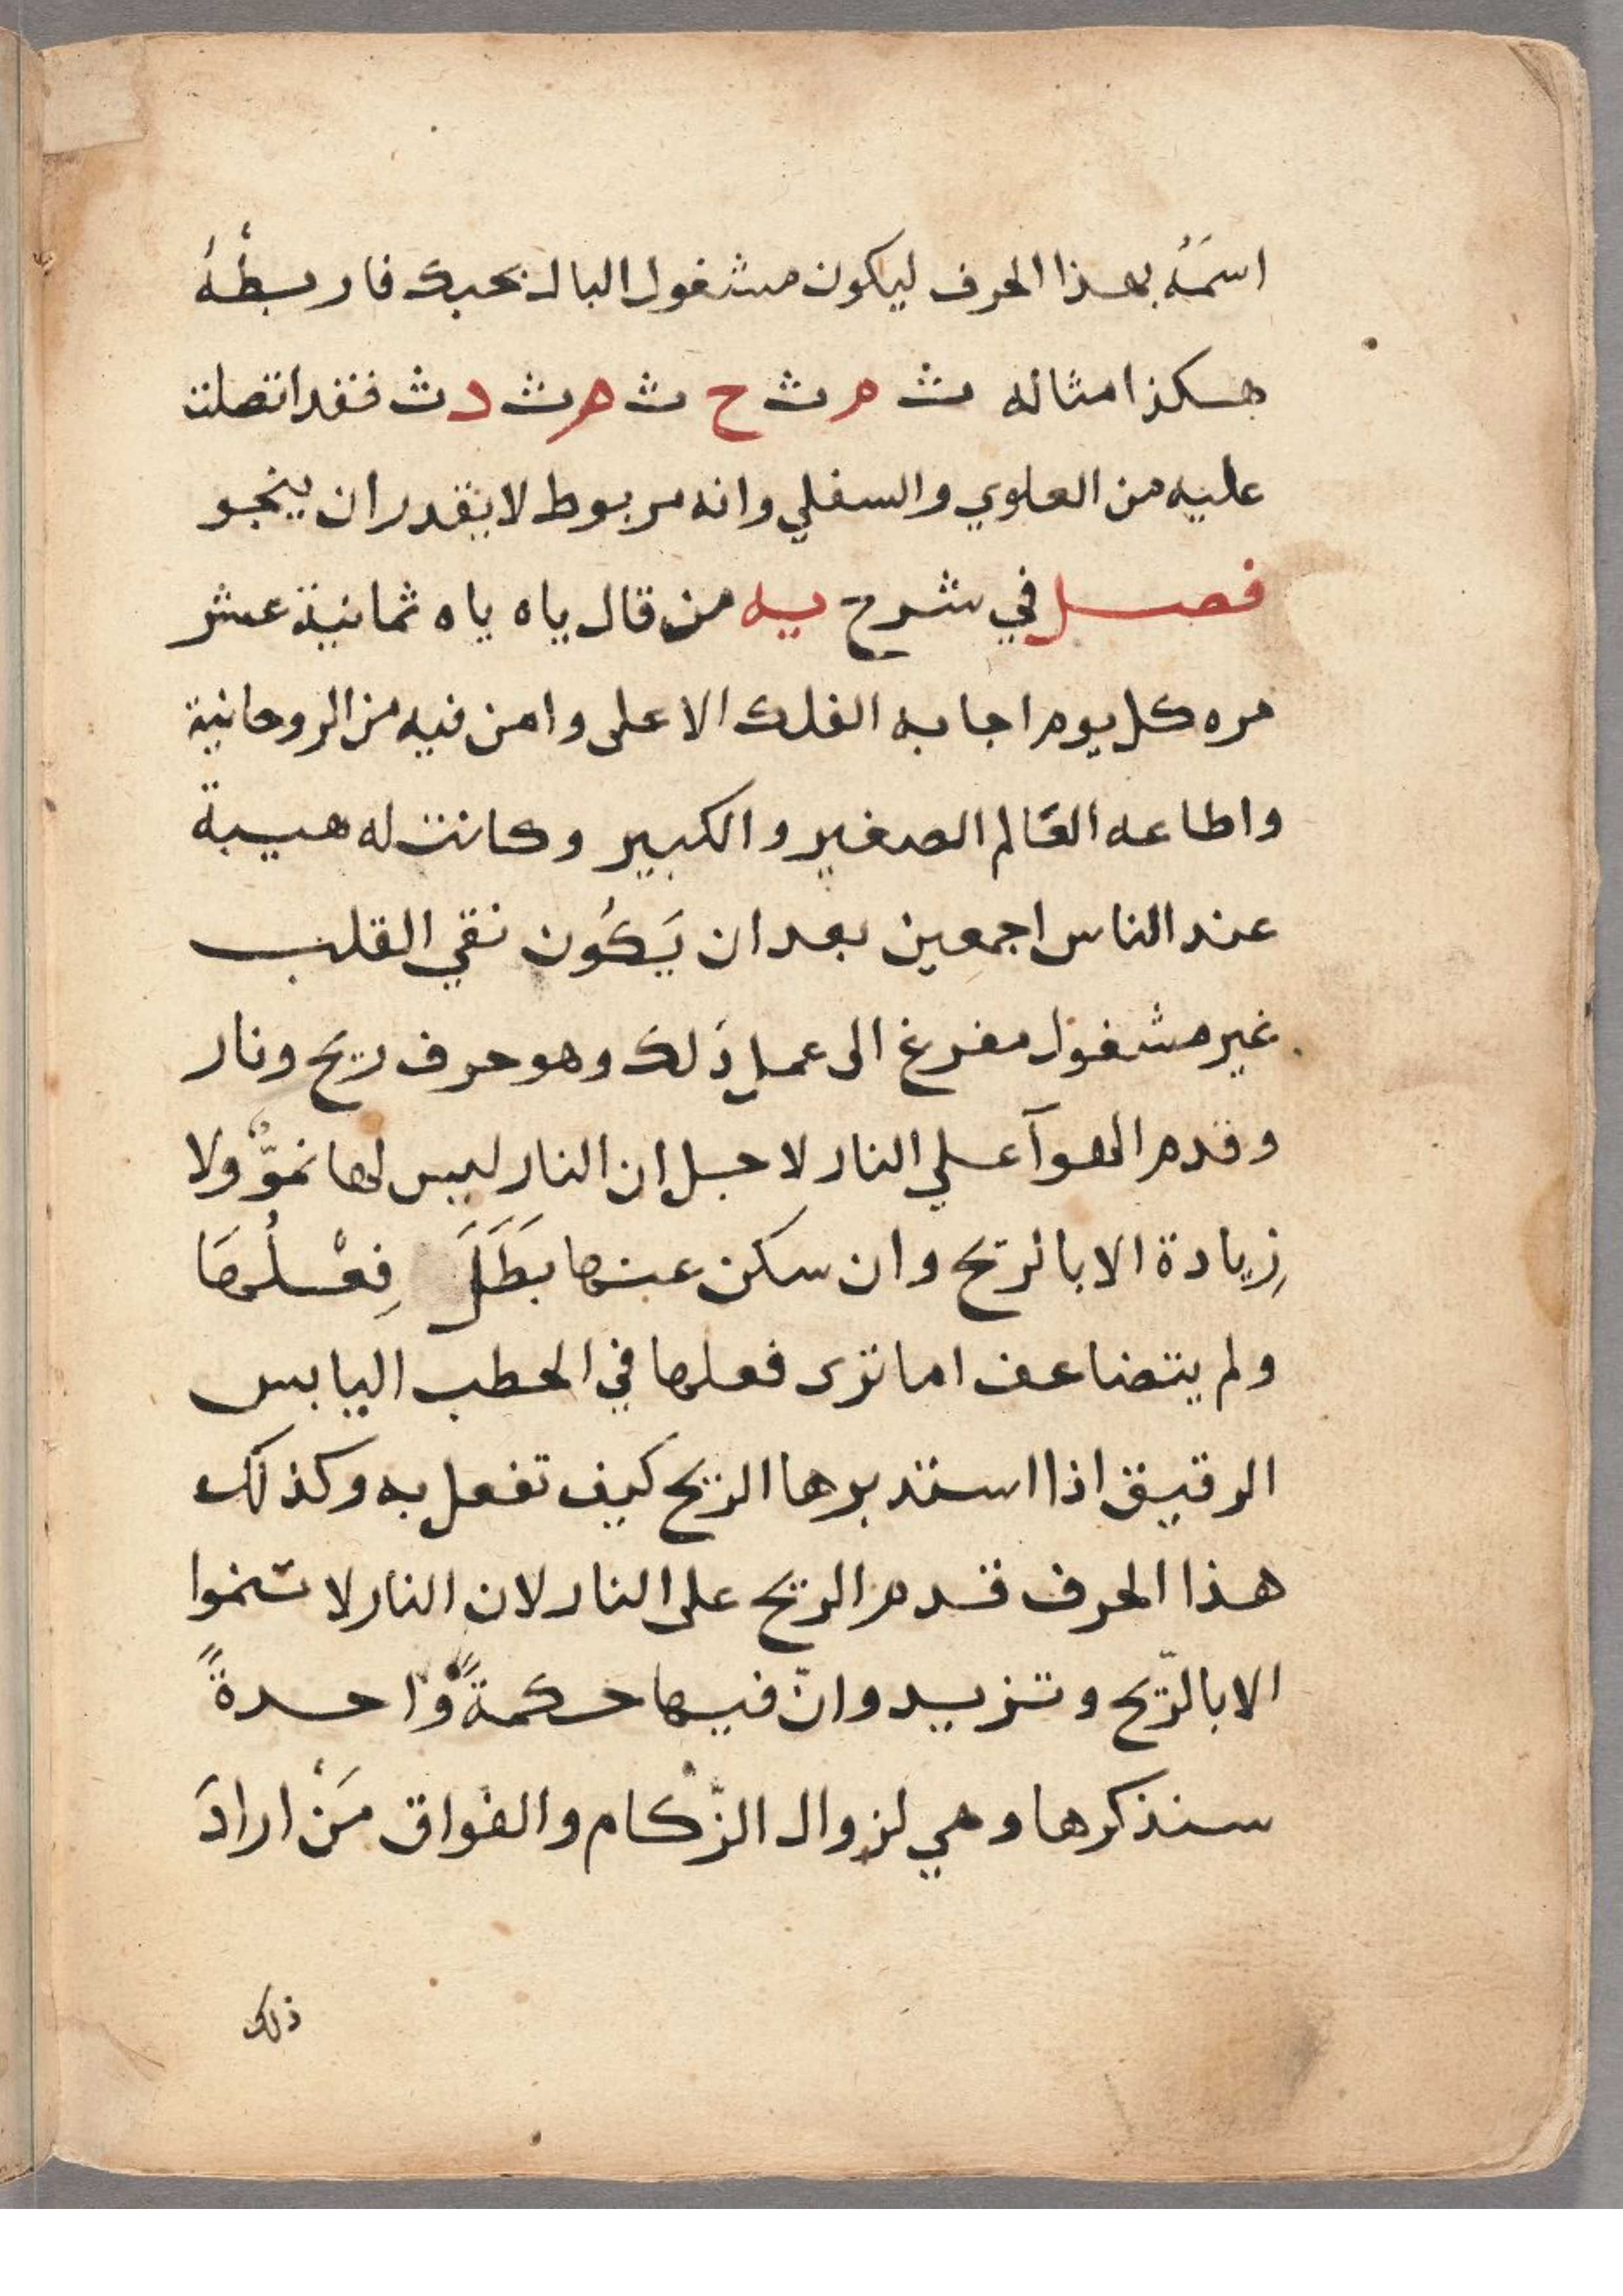 اسمَهُ بهذا الحرف ليكون مشغول البال بحبك فاربطْهُ
هكذا مثاله ث م ث ح ث م ث د ث فقد اتصلت
عليه من العلوي والسفلي وانه مربوط لا يقدر ان ينجو
فصل في شرح يه من قال ياه ياه ثمانية عشر
مره كل يوم اجابه الفلك الاعلى وامن فيه من الروحانية
واطاعه العَالم الصغير والكبير وكانت له هيبة
عند الناس اجمعين بعد ان يَكُون نقي القلب
غير مشغول مفرغ الى عمل ذَلك وهو حرف ريح ونار
وقدم الهوآ علي النار لاجل ان النار ليس لها نموٌّ ولا
زِيادة الا بالريح وان سكن عنها بَطَلَ فِعْلُهَا
ولم يتضاعف اما ترى فعلها في الحطب اليابس
الرقيق اذا استدبرها الريح كيف تفعل به وكذلك
هذا الحرف قدم الريح على النار لان النار لا تنموا
الا بالرّيح وتزيد وانّ فيها حكمةً واحدةً
سنذكرها وهي لزوال الزّكام والفواق مَنْ ارادَ
ذلك